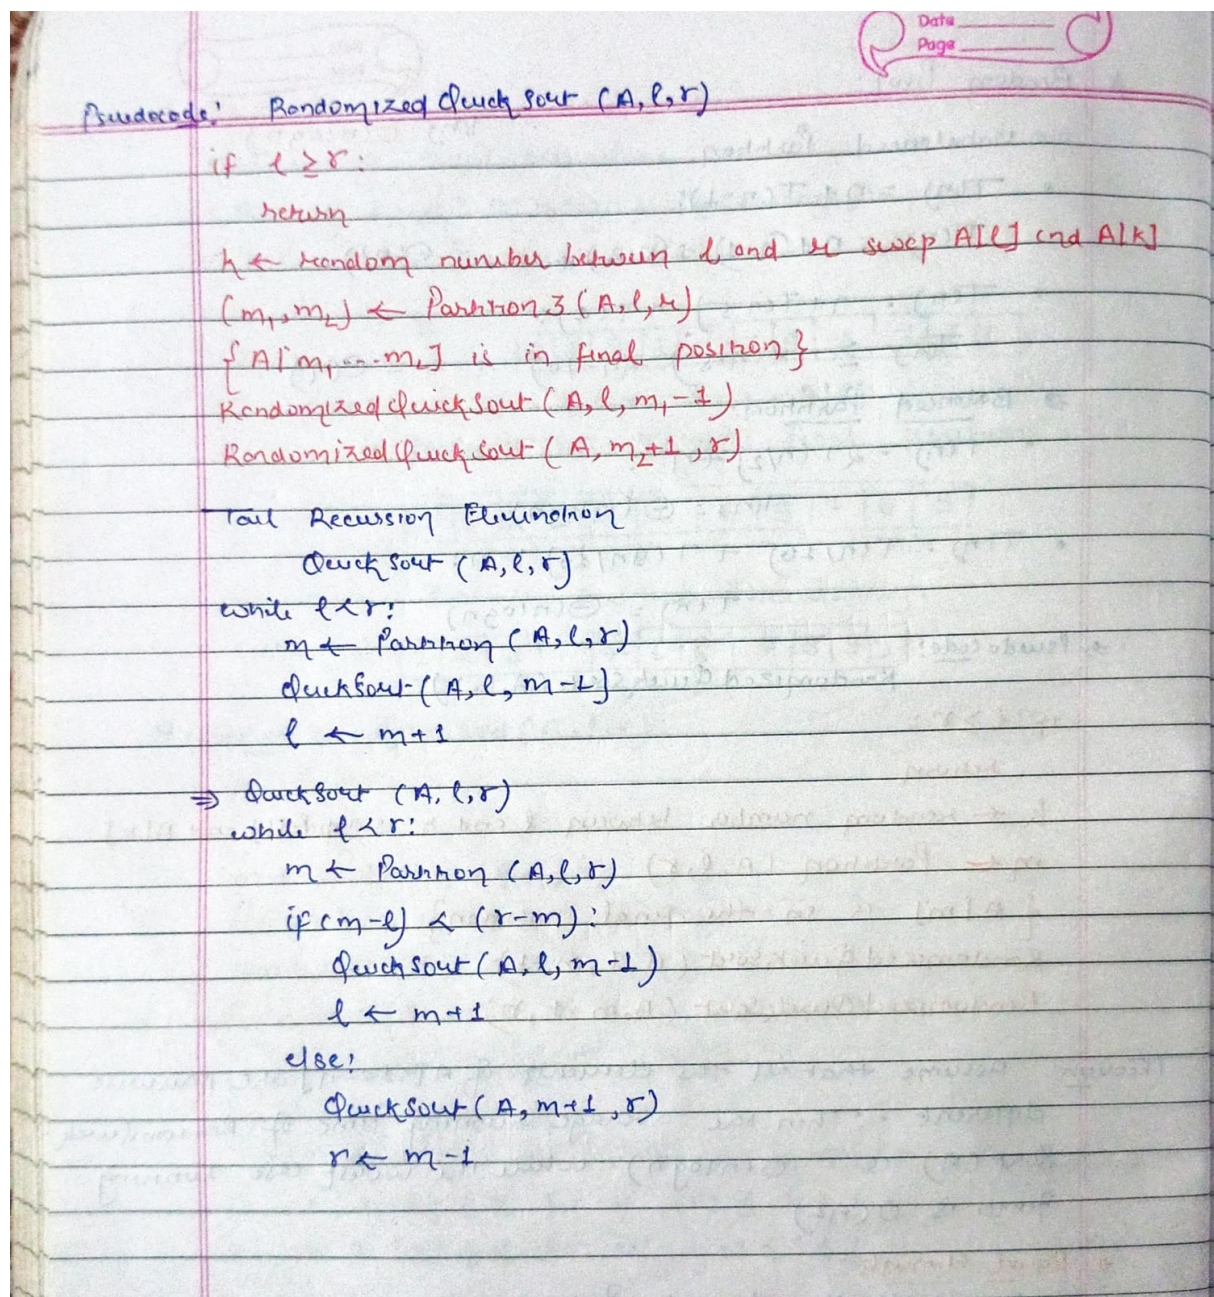 Date
Page
Pseudocode: Randomized Quick Sort (A, l, r)
if l ≥ r:
return
k ← random number between l and r swap A[l] and A[k]
(m₁, m₂) ← Partition 3 (A, l, r)
{A[m₁ ... m₂] is in final position}
Randomized Quick Sort (A, l, m₁-1)
Randomized Quick Sort (A, m₂+1, r)
Tail Recussion Elimination
Quick Sort (A, l, r)
while l < r:
m ← Partition (A, l, r)
Quick Sort (A, l, m-1)
l ← m+1
⇒ Quick Sort (A, l, r)
while l < r:
m ← Partition (A, l, r)
if (m-l) < (r-m):
Quick Sort (A, l, m-1)
l ← m+1
else:
Quick Sort (A, m+1, r)
r ← m-1